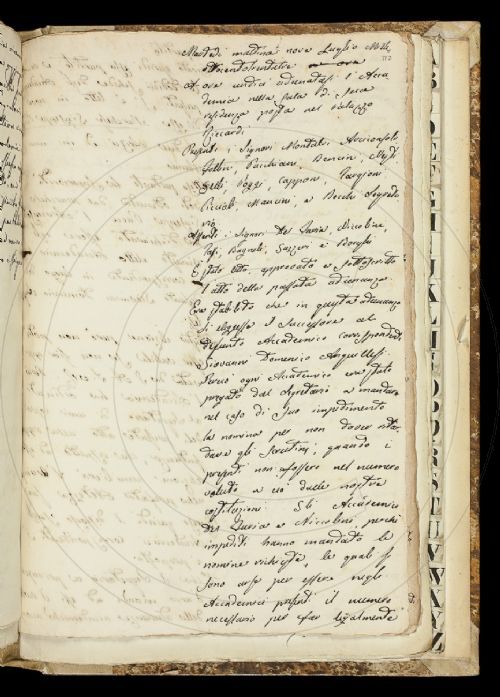 Martedì mattina nove Luglio Mille
ottocentotrentatre
at ore undici adunatasi l'Acca
demia nella sala di sua
residenza posta nel Palazzo
Riccardi.
Presenti i Signori Montalvi, Acciaioli,
Bencini,
Poggi, Capponi, Targioni
Rigoli, Mancini, e Becchi Segreta
rio
Assenti i Signori Del Furia, Niccolini,
Bagnoli, e Borghi
È stato letto, approvato e sottoscritto
l'atto della passata adunanza
Era stabilito che in questa adunanza
si elegesse il successore al
defunto Accademico corrispondente
Giovanni Domenico Anguillesi.
Perciò ogni Accademico era stato
pregato dal Segretario a mandare
nel caso di suo impedimento
la nomina per non dover ritar
dare gli scrutini, quando i
presenti non fossero nel numero
voluto a ciò dalle nostre
costituzioni. Gli Accademici
Del Furia e Niccolini, perché
impediti hanno mandato le
nomine richieste, le quali si
sono per essere negli
Accademici presenti il numero
necessario per far legalmente
A
B
D
E
F
G
I
J
K
L
O
P
R
S
T
U
V
W
X
Y
Z